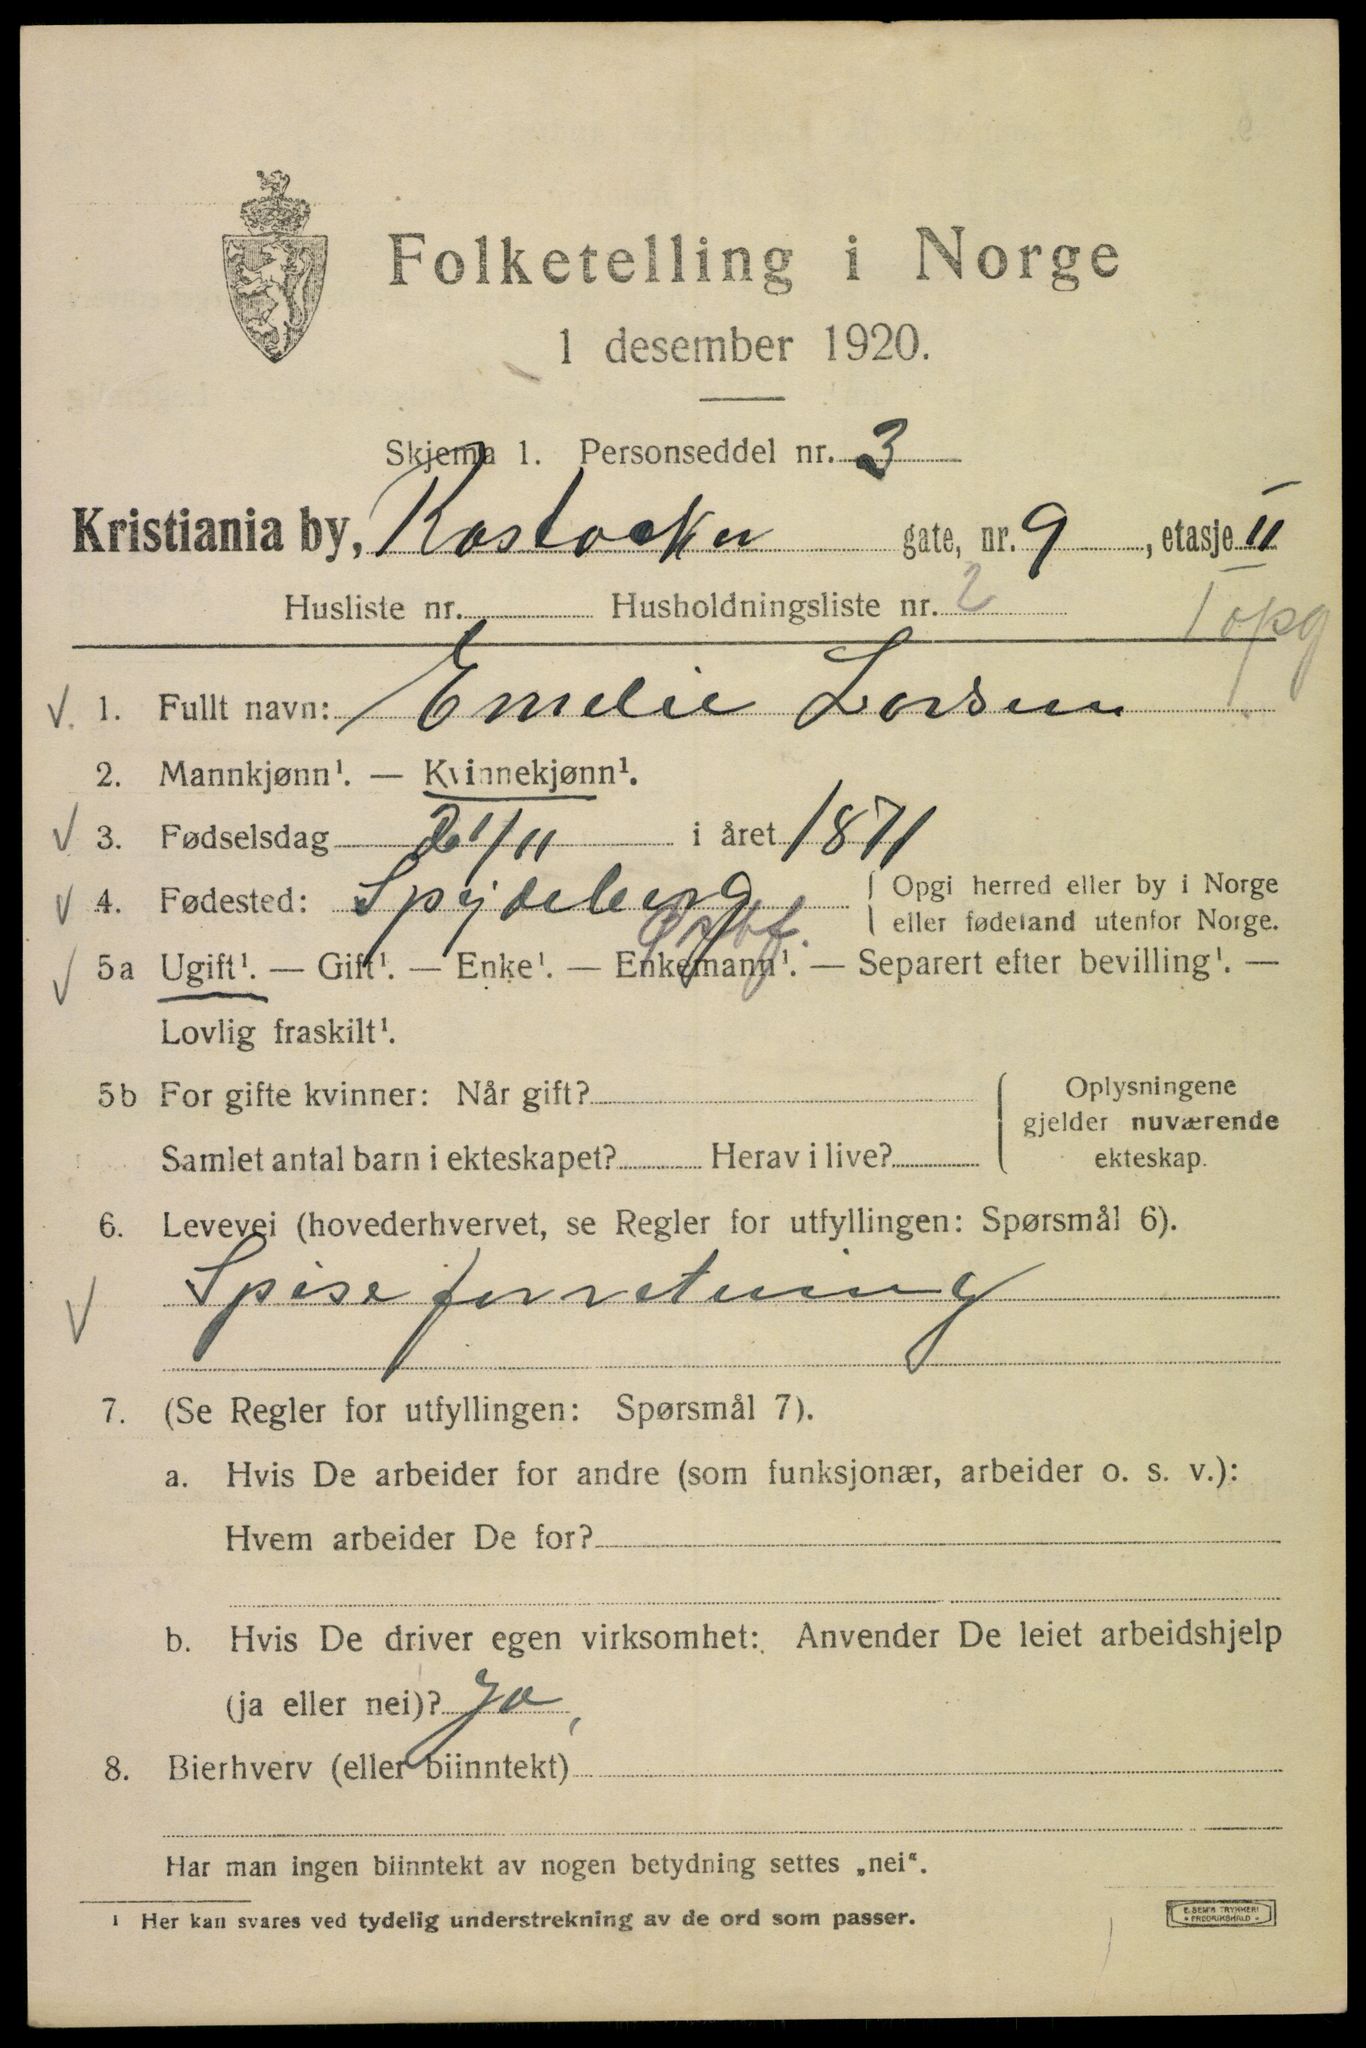 Folketelling i Norge
1 desember 1920.
Skjema 1. Personseddel nr. 3
Kristiania by, Rostocker gate, nr. 9, etasje II
Husliste nr. Husholdningsliste nr. 2
I opg
1. Fullt navn: Emelie Larsen
2. Mannkjønn¹. — Kvinnekjønn¹.
3. Fødselsdag 21/11 i året 1871
4. Fødested: Spydeberg { Opgi herred eller by i Norge
eller fødeland utenfor Norge.
Østf.
5a Ugift¹. — Gift¹. — Enke¹. — Enkemann¹. — Separert efter bevilling¹. —
Lovlig fraskilt¹.
5b For gifte kvinner: Når gift? { Oplysningene
gjelder nuværende
Samlet antal barn i ekteskapet? Herav i live? ekteskap.
6. Levevei (hovederhvervet, se Regler for utfyllingen: Spørsmål 6).
Spiseforretning
7. (Se Regler for utfyllingen: Spørsmål 7).
a. Hvis De arbeider for andre (som funksjonær, arbeider o. s. v.):
Hvem arbeider De for?
b. Hvis De driver egen virksomhet: Anvender De leiet arbeidshjelp
(ja eller nei)? Ja,
8. Bierhverv (eller biinntekt)
Har man ingen biinntekt av nogen betydning settes „nei“.
¹ Her kan svares ved tydelig understrekning av de ord som passer.
E. SEM'S TRYKKERI
FREDRIKSHALD